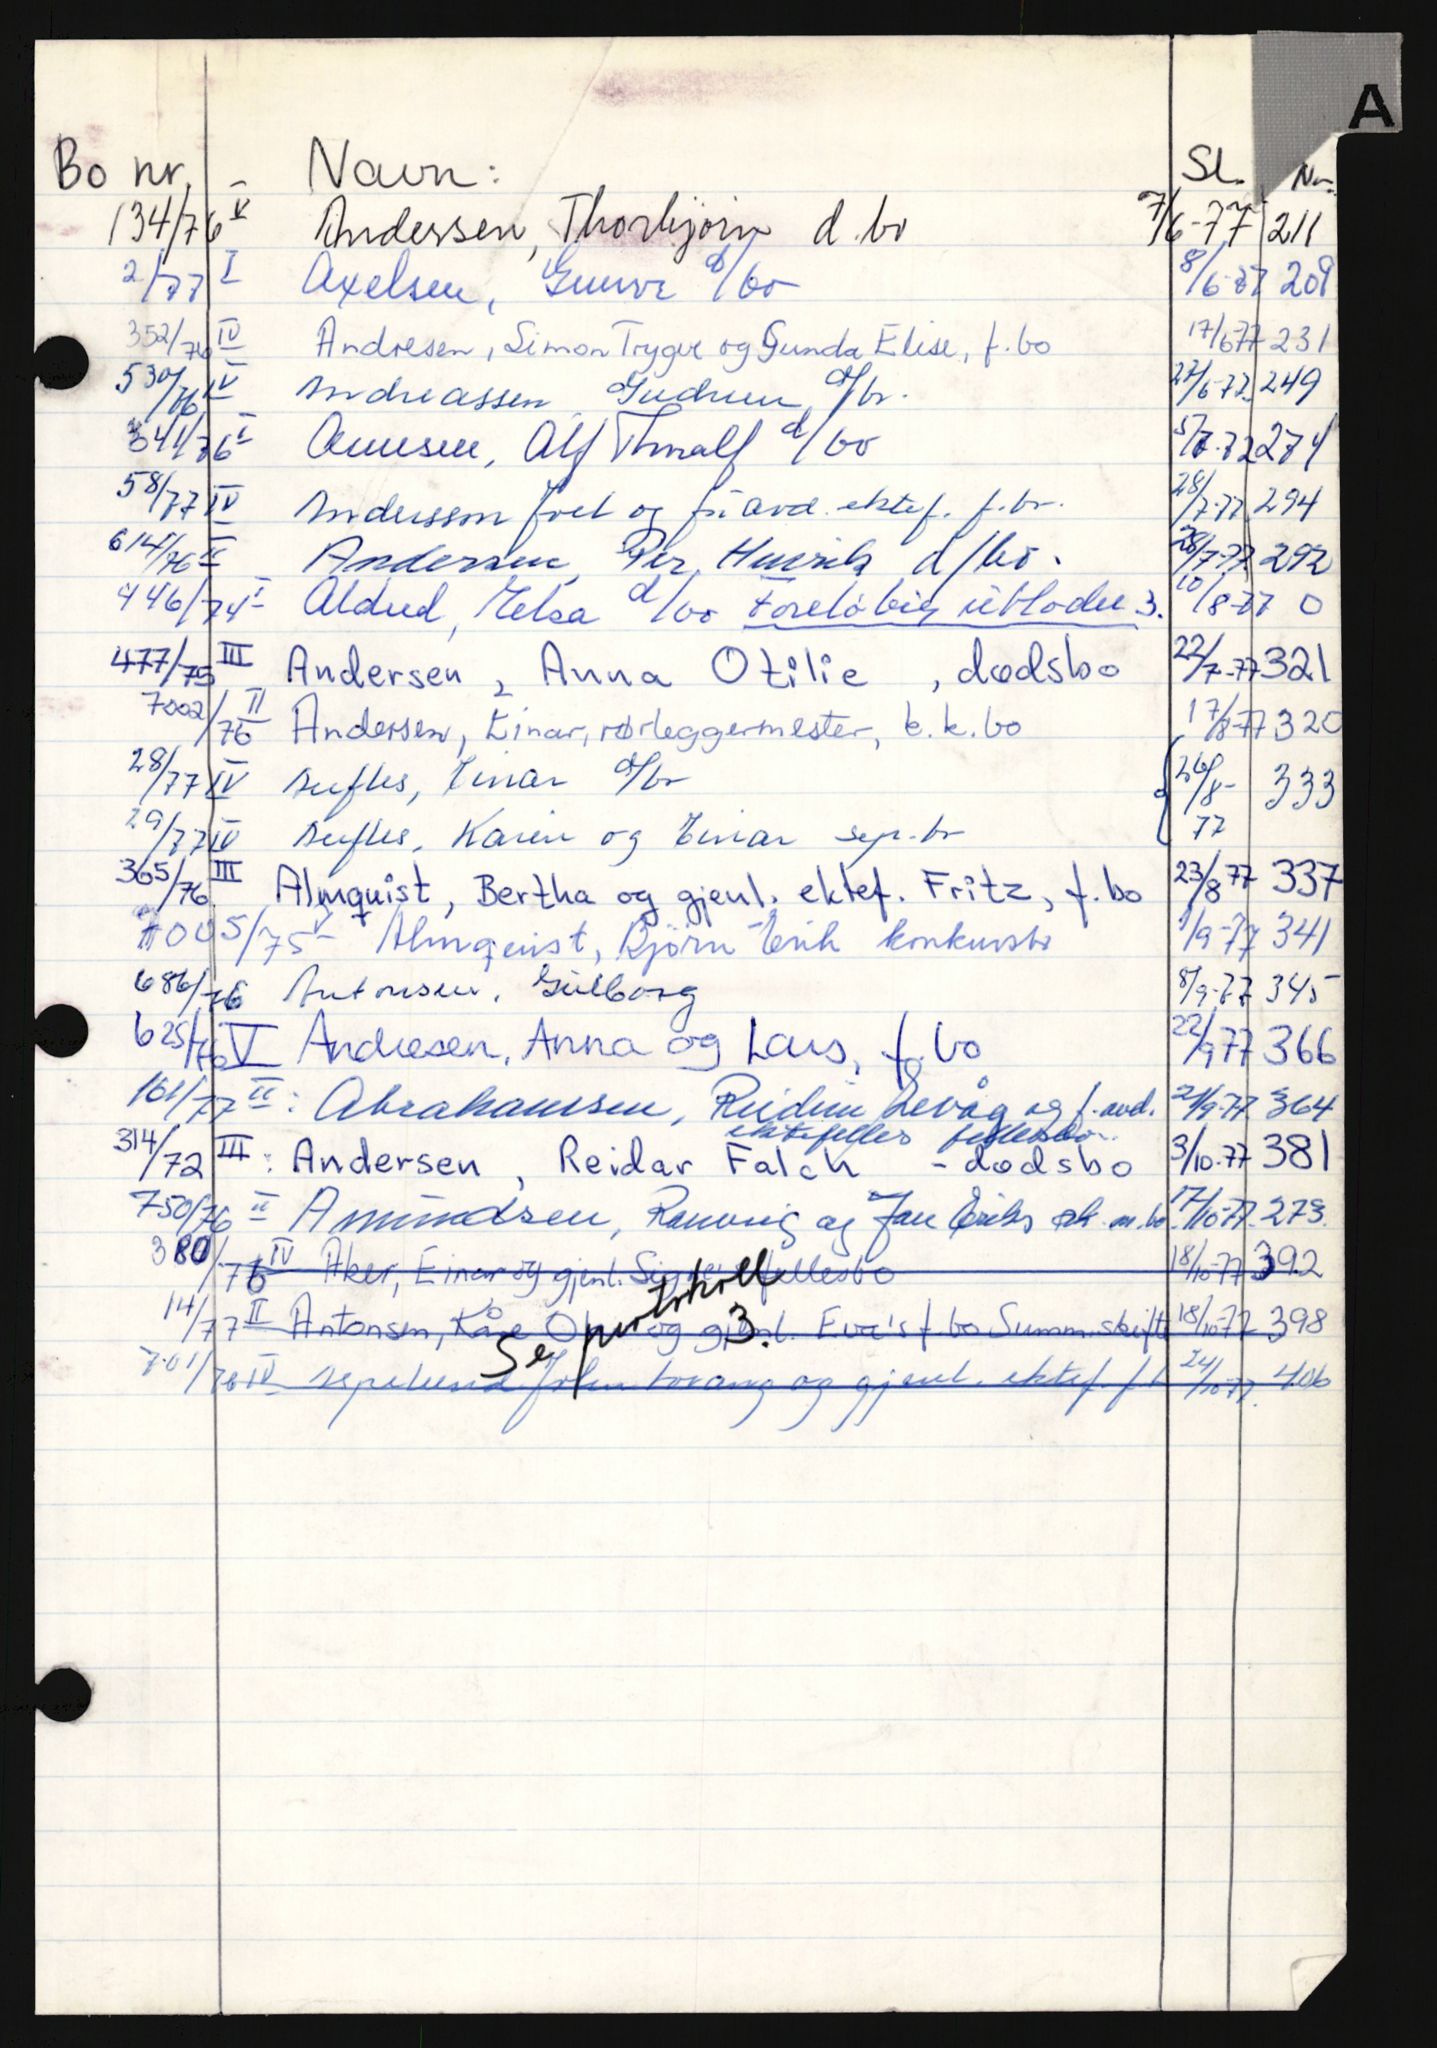 A
Bo nr. Navn: Sl. Nr.
134/76 V Andersen, Thorbjørn d.bo 7/6-77 211
2/77 I Axelsen, d/bo 8/6-77 209
352/76 IV Andresen, Simon Trygve og Gunda Elise, f.bo 17/6 77 231
530/76 IV Andreassen Gudrun d/bo. 27/6-77. 249
341/76 I Alf d/bo 5/7-77 274
58/77 IV Andersson og avd. ektef. f.bo. 28/7-77 294
614/76 II Andersen, Per Henrik d/bo. 28/7-77 292
446/74 I Elsa d/bo Foreløbig utlodn. 3. 10/8-77 0
477/75 III Andersen, Anna Otilie, dødsbo 22/7-77 321
7002/76 II Andersen, Einar, rørleggermester, k.k.bo 17/8-77 320
28/77 IV Einar d/bo 26/8-77 333
29/77 IV Karin og Einar sep.bo
365/76 III Almquist, Bertha og gjenl. ektef. Fritz, f.bo 23/8 77 337
7005/75 V Almqvist, Bjørn Erik konkursbo 1/9-77 341
686/76 Antonsen, Gulborg 8/9-77 345
625/76 V Andresen, Anna og Lars, f.bo 22/9 77 366
161/77 II: Abrahamsen, Reidun Levåg og f.avd. 21/9-77 364
ektefelles fellesbo.
314/72 III: Andersen, Reidar Falch - dødsbo 3/10-77 381
750/76 II Amundsen, Ranveig og Jan Eriks 17/10-77. 273.
380/76 IV Aker, Einar og gjenl. Signe's fellesbo 18/10-77 392
14/77 II Antonsen, Kåre og gjenl. Eva's f.bo Summ.skifte 18/10-77 398
Se protokoll 3.
701/76 IV John og gjenl. ektef. 24/10-77. 406